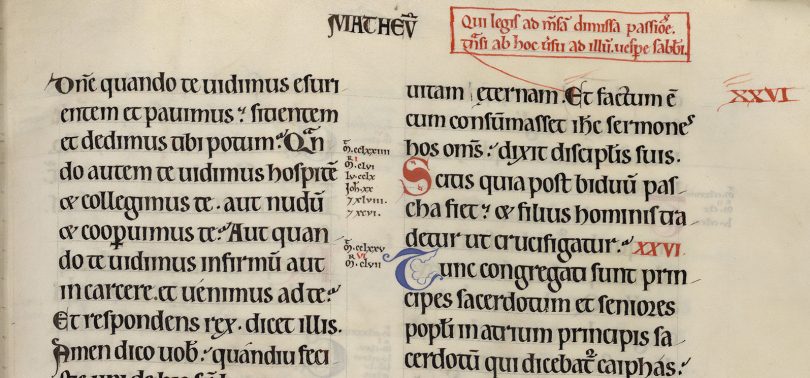 MATHEV̄
Qui legis ad m̄sā dimissa passiōe.
t̄nsi ab hoc ūsu ad illū. uesꝑe sabbi.
Dn̄e quando te uidimus esuri
entem et pauimus? sitientem
et dedimus tibi potum? Qn̄
do autem te uidimus hospitē
& collegimus te. aut nudū
& cooꝑuimus te? Aut quan
do te uidimus infirmū aut
in carcere. et uenimus ad te?
Et respondens rex. dicet illis.
Amen dico uob. quādiu feci
m̄. cclxxiiii
R I
m̄. clvi
lv. cclx
joh. xx
7 xlviii.
7 xxvi.
m̄. cclxxv
R VI
m̄. clvii
uitam ęternam. Et factum ē
cum consūmasset ihc sermones
hos om̄s. dixit discipłis suis.
Scitis quia post biduū pas
cha fiet? & filius hominis tra
detur ut crucifigatur. XXVI
Tunc congregati sunt prin
cipes sacerdotum et seniores
popłi in atrium principis sa
cerdotū qui dicebat᷑ caiphas.
XXVI